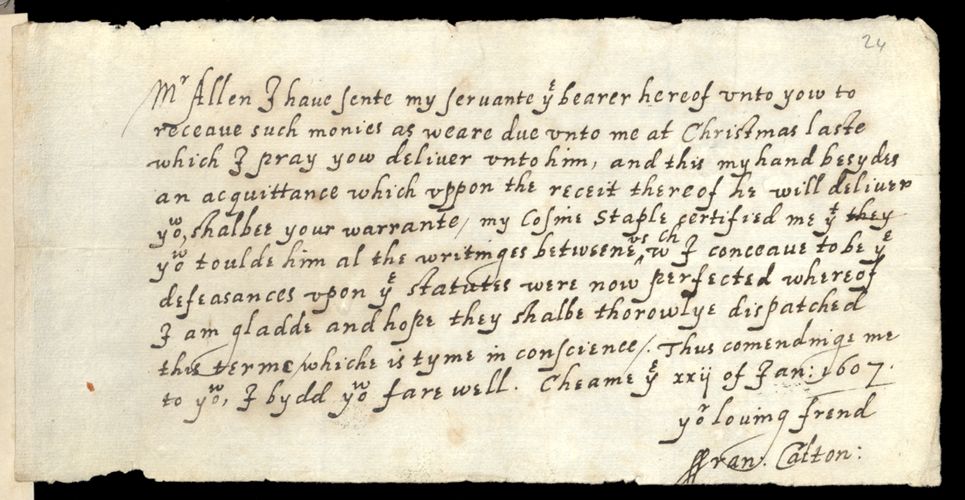 24
Mr Allen I haue sente my seruante ye bearer hereof vnto yow to
receaue such monies as weare due vnto me at Christmas laste
which I pray yow deliver vnto him, and this my hand besydes
an acquittance which vppon the receit thereof he will deliver
yow, shalbee your warrante / my Cosine Staple certified me yt they
yow toulde him al the writinges betweene vs wch I conceaue to be ye
defeasances vpon ye statutes were now perfected whereof
I am gladde and hope they shalbe thorowlye dispatched
this terme / whiche is tyme in conscience /. Thus comendinge me
to yow, I bydd yow farewell. Cheame ye xxij of Jan: 1607.
yr louing frend
ffran. Calton: